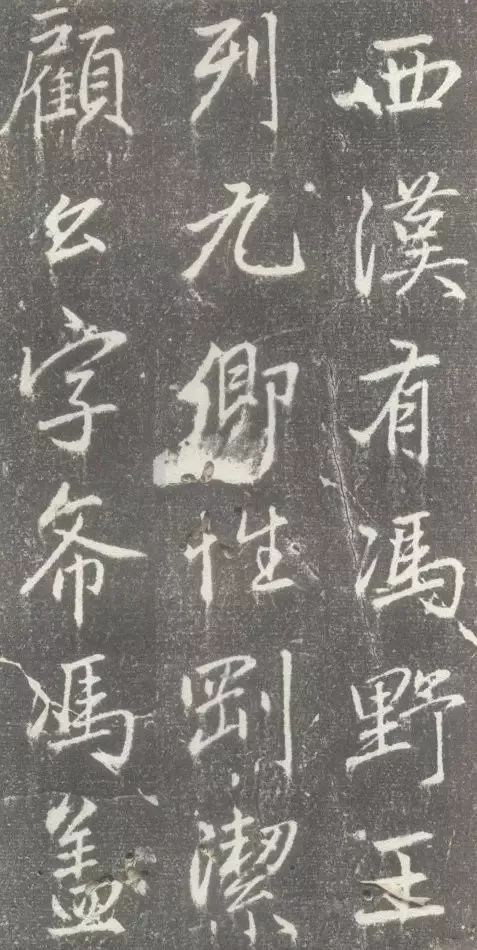 西漢有馮野王
列九卿性剛潔
顧公字希馮盖